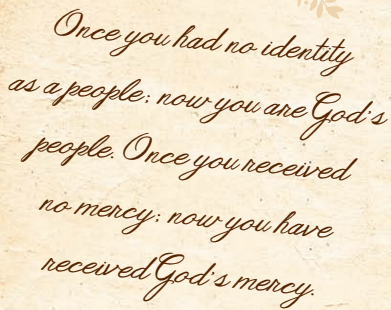 Once you had no identity
as a people; now you are God's
people. Once you received
no mercy; now you have
received God's mercy.